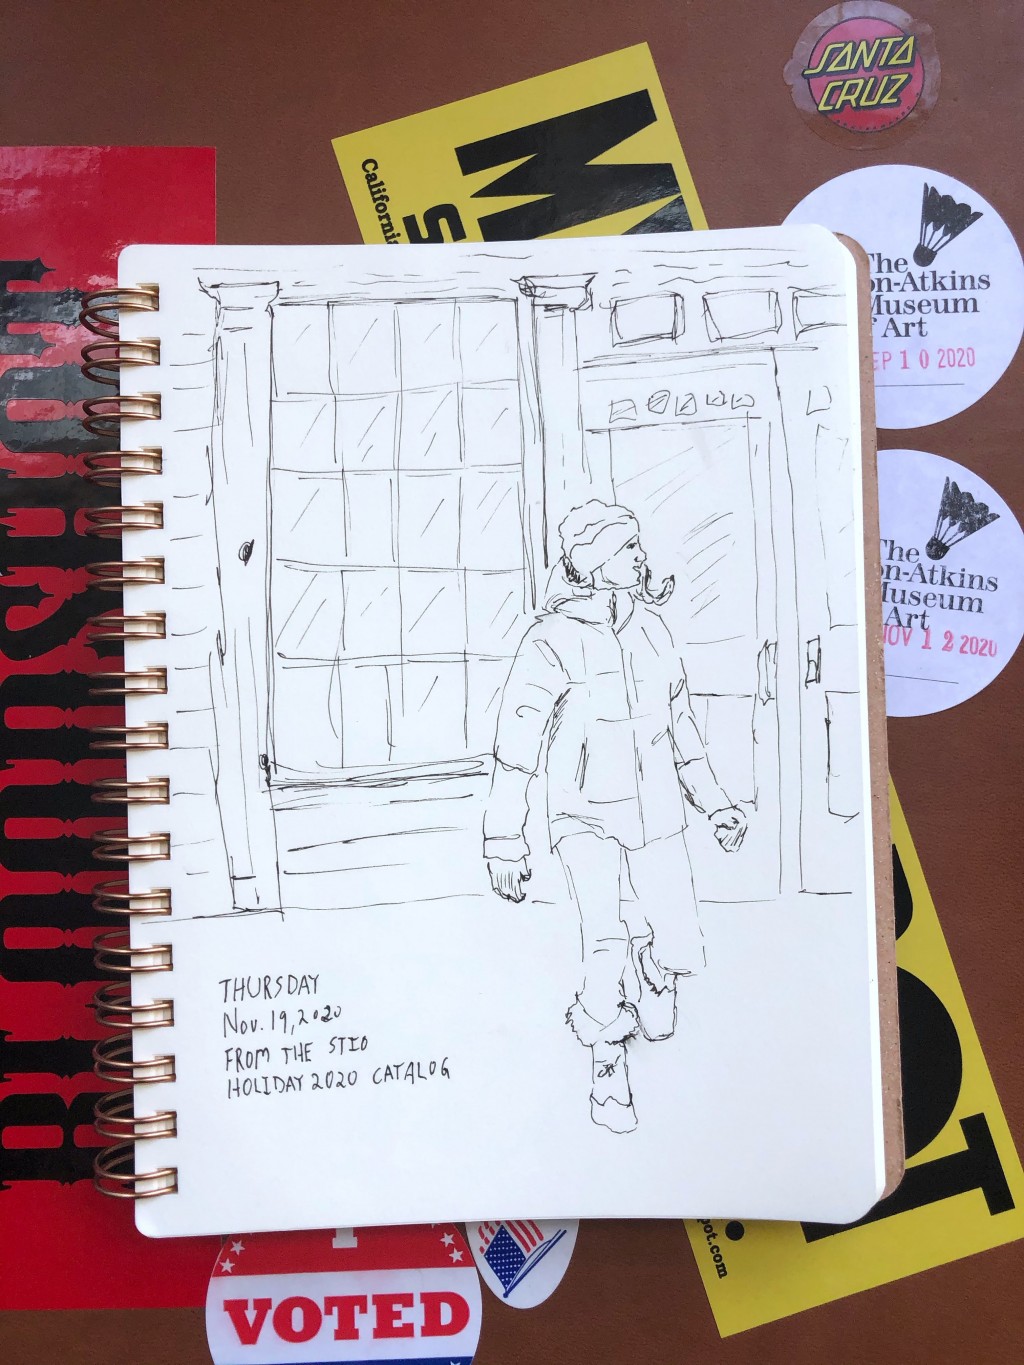 SANTA
CRUZ
M
S
The
on-Atkins
Museum
f Art
EP 1 0 2020
The
on-Atkins
Museum
Art
NOV 1 2 2020
THURSDAY
Nov. 19, 2020
FROM THE STIO
HOLIDAY 2020 CATALOG
pot.com
I
VOTED